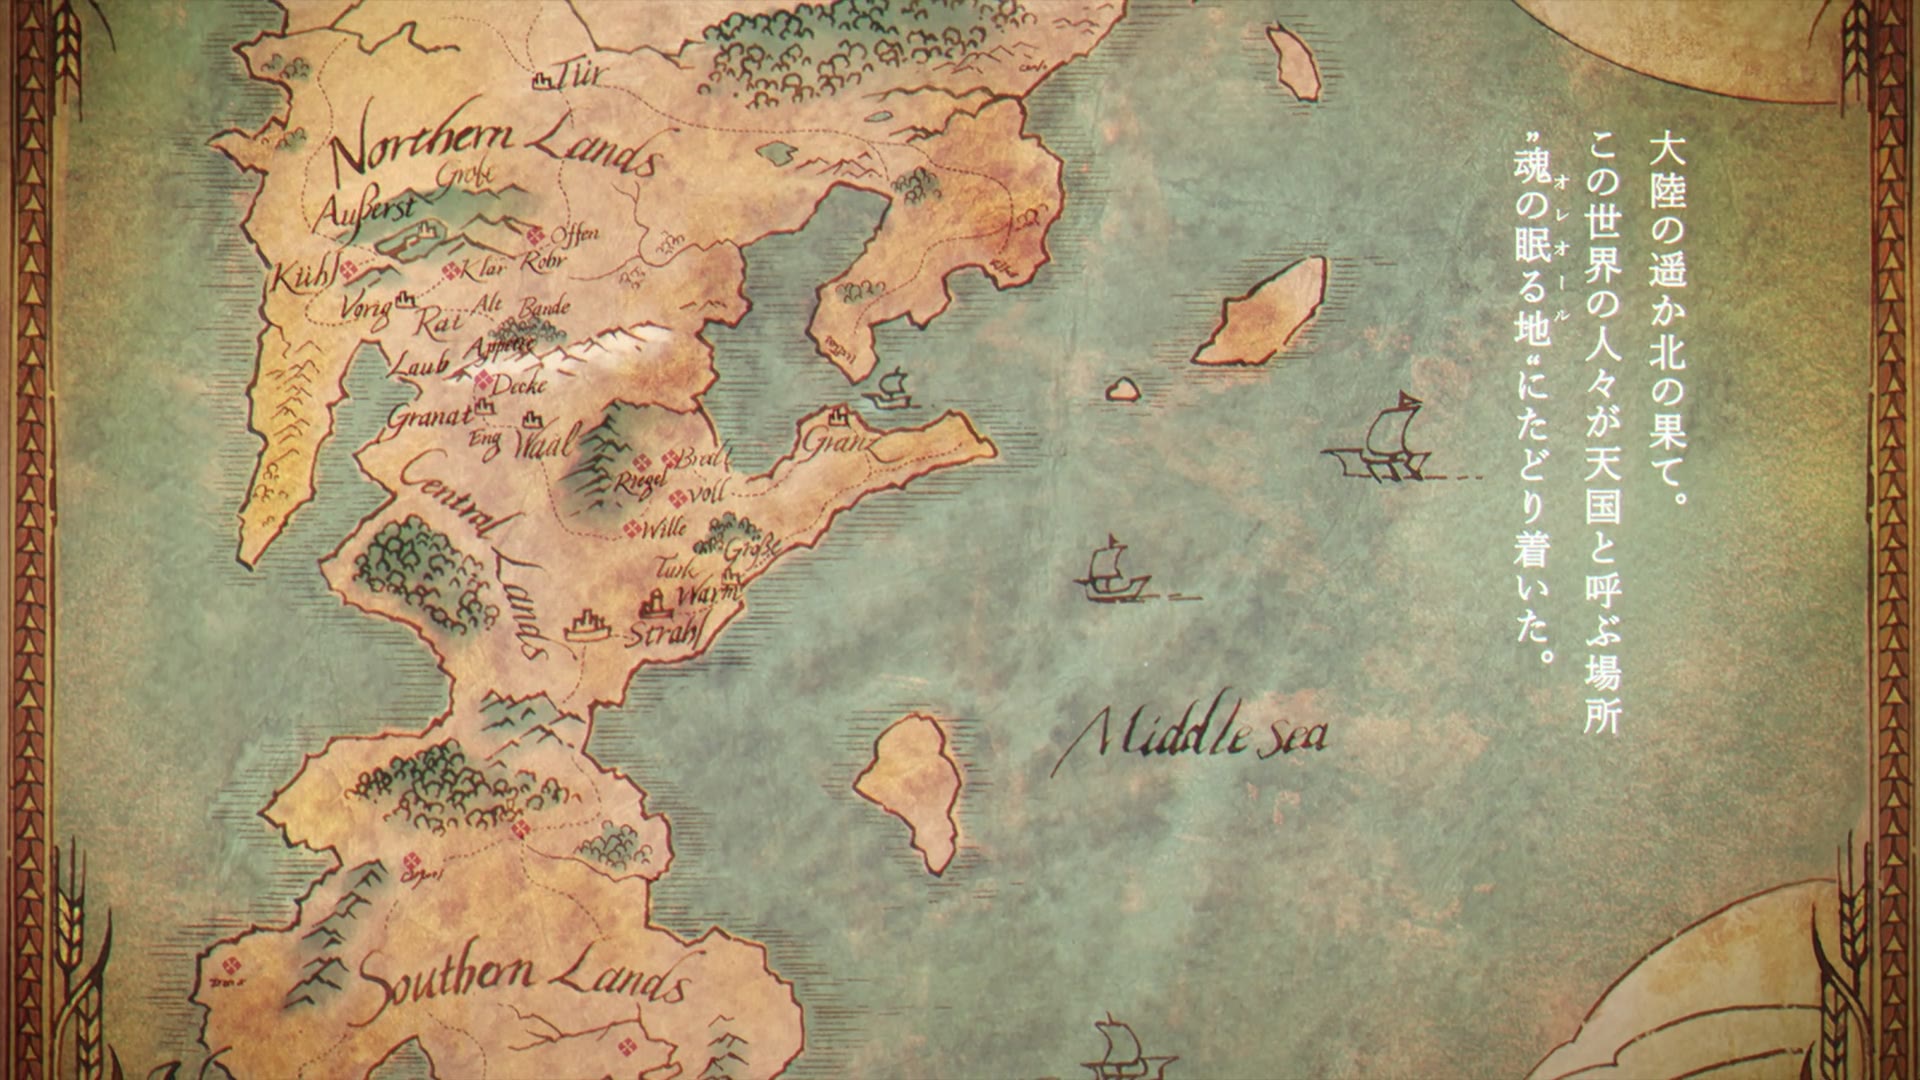 大陸の遥か北の果て。
この世界の人々が天国と呼ぶ場所
〝魂の眠る地〟にたどり着いた。
オレオール
Tür
Northern Lands
Grobe
Außerst
Offen
Kühl
Klar
Rohr
Vorig
Rat
Alt
Bande
Appetit
Laub
Decke
Granat
Eng
Waal
Granz
Riegel
Bredt
Voll
Central Lands
Wille
Große
Turk
Warm
Strahl
Middle Sea
Southern Lands